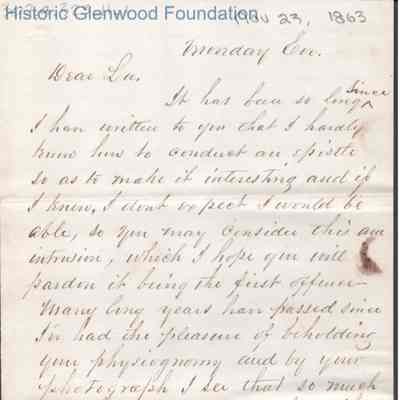 Historic Glenwood Foundation
Nov 23, 1863
Monday Eve.
Dear Lu.
It has been so long since
I have written to you that I hardly
know how to conduct an epistle
so as to make it interesting and if
I knew, I dont expect I would be
able, so you may consider this an
intrusion, which I hope you will
pardon it being the first offence
Many long years have passed since
I've had the pleasure of beholding
your physiognomy and by your
photograph I see that so much